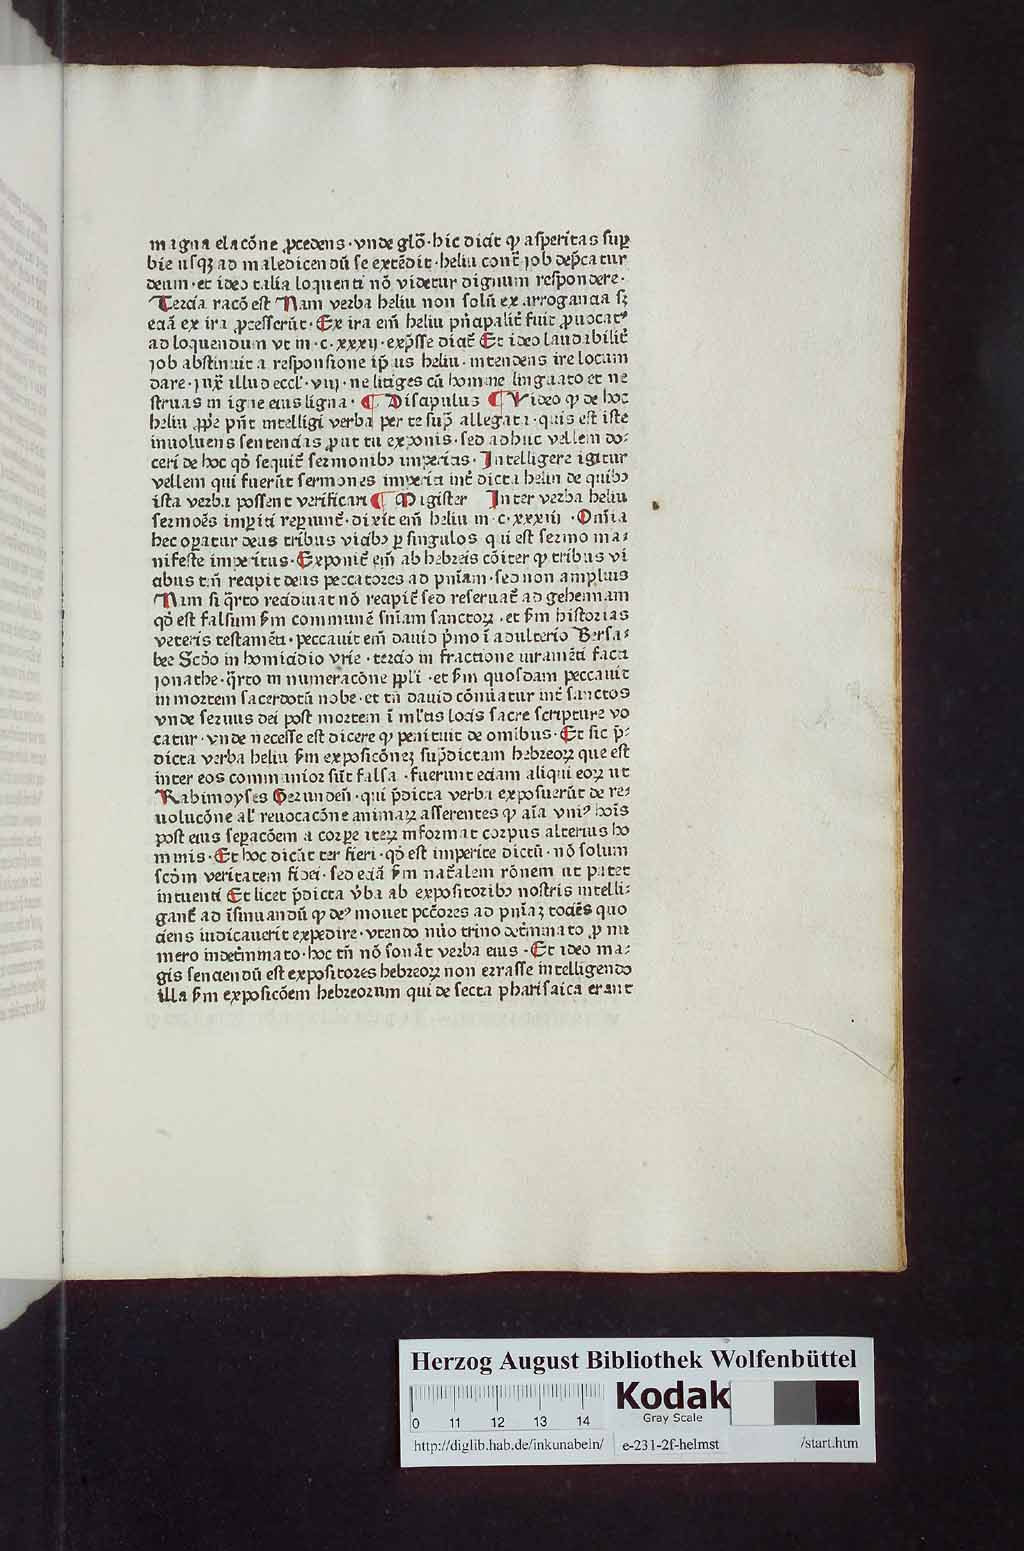 magna elacōne ꝓcedens · vnde glo᷒ · hic dicit̄ ꝙ asperitas suꝑ
bie usqꝫ ad maledicendū se extēdit · heliu cont̄ ȷob dep̄catur
deum · et ideo talia loquenti nō videtur dignum respondere ·
Tercia racō est Nam verba heliu non solū ex arrogancia sꝫ
eciā ex ira ꝓcesserūt · Ex ira em̄ heliu pn̄cipalit̄ fuit ꝓuocat⁹
ad loquendum vt in · c · xxxij · exp̄sse dicit̄ Et ideo laudabilit̄
ȷob abstinuit a responsione ip̄ius heliu · intendens ire locum
dare · ȷuxᷓ illud eccl̄ · viij · ne litiges cū homine linguato et ne
struas in igne eius ligna · ¶ Discipulus ¶ Video ꝙ de hoc
heliu ꝓp̄e pn̄t intelligi verba per te sup̄ allegata · quis est iste
inuoluens sentencias ꝓut tu exponis · sed adhuc vellem do⸗
ceri de hoc qd̄ sequit̄ sermonibꝫ imperitis · Intelligere igitur
vellem qui fuerūt sermones imperiti int̄ dicta heliu de quibꝫ
ista verba possent verificari ¶ Magister Inter verba heliu
sermoēs imꝑiti reꝑiunt̄ · dixit em̄ heliu in · c · xxxiij · Om̄ia
hec oꝑatur deus tribus vicibꝫ ꝑ singulos qui est sermo ma⸗
nifeste imperitus · Exponit̄ em̄ ab hebreis cōiter ꝙ tribus vi
cibus tm̄ recipit deus peccatores ad pn̄iam · sed non amplius
Nam si q̄rto recidiuat nō recipit̄ sed reseruat̄ ad gehennam
qd̄ est falsum ẜm communē sn̄iam sanctoꝝ · et ẜm historias
veteris testamēti · peccauit em̄ dauid p̄mo ī adulterio Bersa⸗
bee Scd̄o in homicidio vrie · tercio in fractione iuramēti facti
ȷonathe · q̄rto in numeracōne ppl̄i · et ẜm quosdam peccauit
in mortem sacerdotū nobe · et tn̄ dauid cōnu̅atur int̄ sanctos
vnde seruus dei post mortem ī ml̄tis locis sacre scripture vo
catur · vnde necesse est dicere ꝙ penituit de omnibus · Et sic p̄⸗
dicta verba heliu ẜm exposicōneꝫ sup̄dictam hebreoꝝ que est
inter eos communior sūt falsa · fuerunt eciam aliqui eoꝝ ut
Rabimoyses Gerunden̄ · qui p̄dicta verba exposuerūt de re⸗
uolucōne al̄ reuocacōne animaꝝ asserentes ꝙ aīa vni⁹ hoīs
post eius seꝑacōem a corꝑe iteꝝ informat corpus alterius ho
minis · Et hoc dicūt ter fieri · qd̄ est imperite dictū · nō solum
scd̄m veritatem fidei · sed eciā ẜm nat̄alem rōnem ut patet
intuenti Et licet p̄dicta v̄ba ab expositoribꝫ nostris intelli⸗
gant̄ ad īsinuandū ꝙ de⁹ mouet pcc̄ores ad pn̄iaꝫ tociēs quo
ciens iudicauerit expedire · vtendo nūo trino det̄minato ꝓ nu
mero indet̄minato · hoc tn̄ nō sonāt verba eius · Et ideo ma⸗
gis senciendū est expositores hebreoꝝ non errasse intelligendo
illa ẜm exposicōem hebreorum qui de secta pharisaica erant
Herzog August Bibliothek Wolfenbüttel
Kodak
Gray Scale
0 11 12 13 14
http://diglib.hab.de/inkunabeln/ e-231-2f-helmst /start.htm